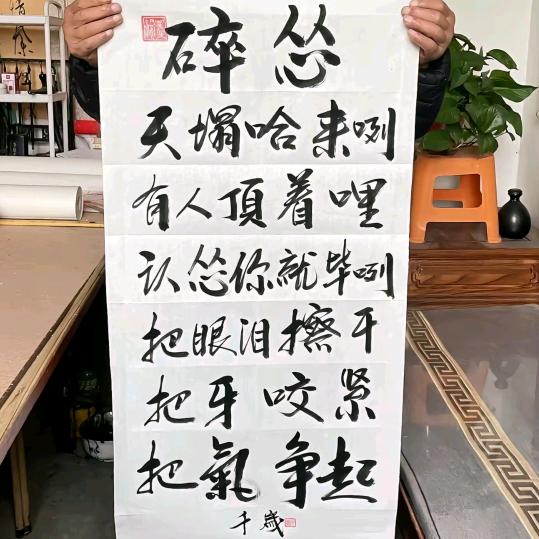 碎怂
天塌哈来咧
有人頂着哩
认怂你就毕咧
把眼泪擦干
把牙咬紧
把氣争起
千歲